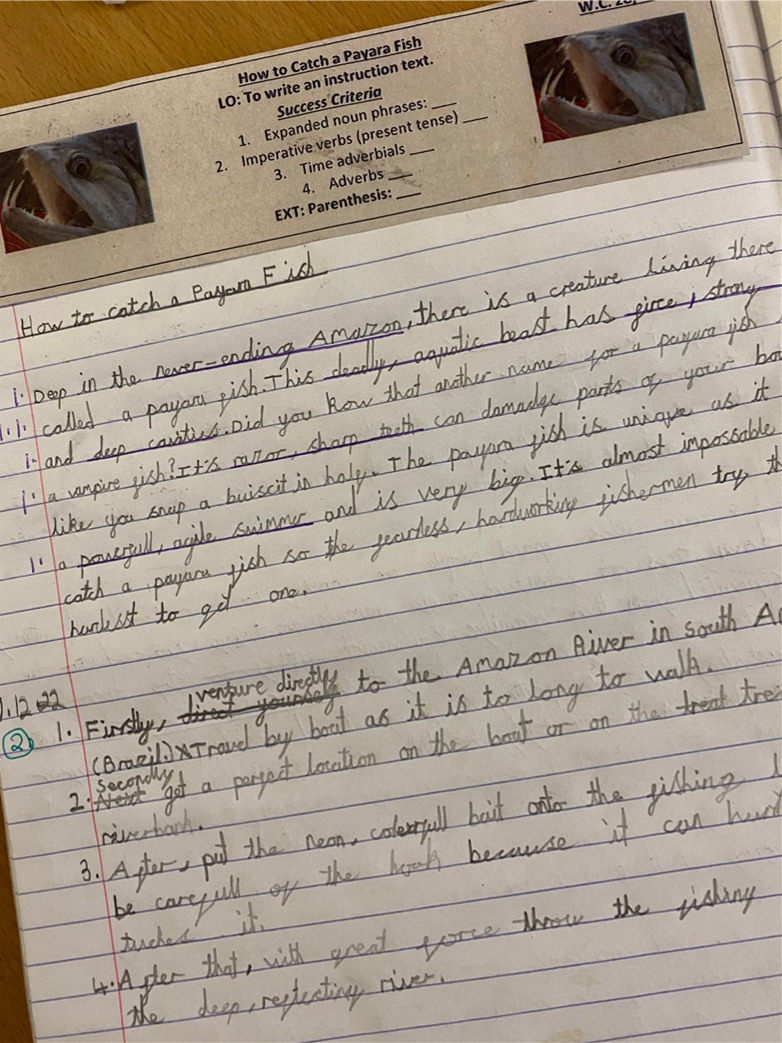 W.C. 28,
How to Catch a Payara Fish
LO: To write an instruction text.
Success Criteria
1. Expanded noun phrases: ___
2. Imperative verbs (present tense) ___
3. Time adverbials ___
4. Adverbs ___
EXT: Parenthesis: ___
How to catch a Payara Fish
1. Deep in the never-ending Amazon, there is a creature living there
1.1. called a payara fish. This deadly, aquatic beast has girce, strong
1. and deep cavities. Did you know that another name for a payara fish
1. a vampire fish? It's razor, sharp teeth can damadge parts of your
like you snap a buiscit in half. The payara fish is unique as it
1. a powerfull, agile swimmer and is very big. It's almost impossable
catch a payara fish so the fearless, hardworking fishermen try
hardesst to get one.
.12.22
venture directly
2 1. Firstly, direct yourself to the Amazon River in south
(Brazil.) Travel by boat as it is to long to walk.
Secondly
2. Next get a perfect location on the boat or on the treat
riverbank.
3. After, put the neon, colerfull bait onto the fishing
be carefull of the hook because it can
tuches it.
4. After that, with great force throw the fishing
the deep, reflecting river.